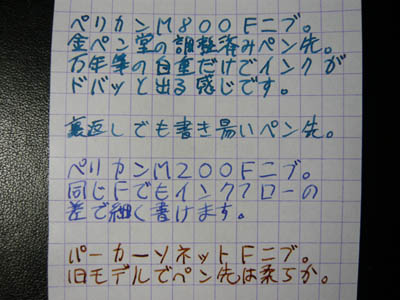 ペリカンM800Fニブ。
金ペン堂の調整済みペン先。
万年筆の自重だけでインクが
ドバッと出る感じです。
裏返しでも書き易いペン先。
ペリカンM200Fニブ。
同じFでもインクフローの
差で細く書けます。
パーカーソネットFニブ。
旧モデルでペン先は柔らか。